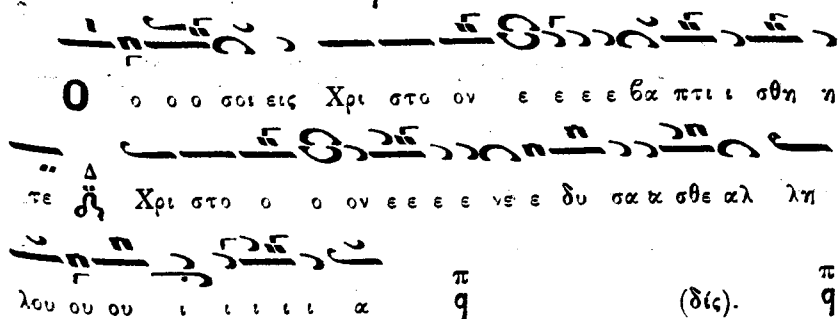 Ο ο ο ο σοι εις Χρι στο ον ε ε ε ε βα πτι ι σθη η
τε Δ Χρι στο ο ο ον ε ε ε ε νε ε δυ σα α σθε αλ λη
λου ου ου ι ι ι ι ι α π q (δίς). π q